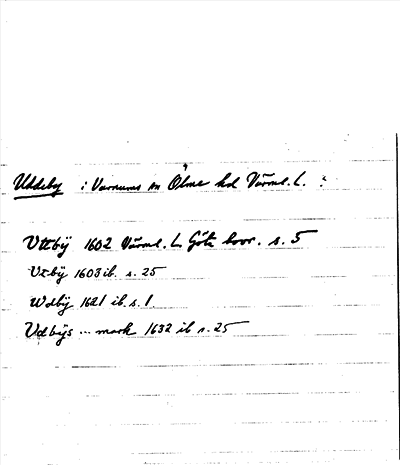 Uddeby i Varnums sn Ölme hd Värml. L. :
Uttbÿ 1602 Värml. L. Göta boor. s. 5
Utbÿ 1603 ib. s. 25
Wdbÿ 1621 ib. s. 1.
Udbÿs ... mark 1632 ib s. 25